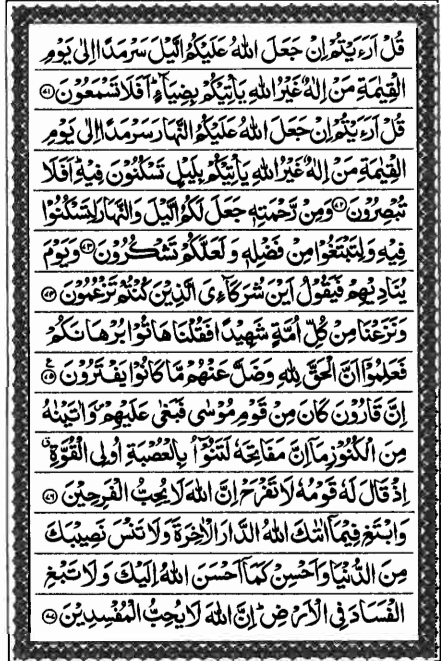 قُلْ اَرَءَيْتُمْ اِنْ جَعَلَ اللهُ عَلَيْكُمُ الَّيْلَ سَرْمَدًا اِلٰى يَوْمِ
الْقِيٰمَةِ مَنْ اِلٰهٌ غَيْرُ اللهِ يَاْتِيْكُمْ بِضِيَآءٍ ؕ اَفَلَا تَسْمَعُوْنَ ﴿۷۱﴾
قُلْ اَرَءَيْتُمْ اِنْ جَعَلَ اللهُ عَلَيْكُمُ النَّهَارَ سَرْمَدًا اِلٰى يَوْمِ
الْقِيٰمَةِ مَنْ اِلٰهٌ غَيْرُ اللهِ يَاْتِيْكُمْ بِلَيْلٍ تَسْكُنُوْنَ فِيْهِ ؕ اَفَلَا
تُبْصِرُوْنَ ﴿۷۲﴾ وَمِنْ رَّحْمَتِهٖ جَعَلَ لَكُمُ الَّيْلَ وَالنَّهَارَ لِتَسْكُنُوْا
فِيْهِ وَلِتَبْتَغُوْا مِنْ فَضْلِهٖ وَلَعَلَّكُمْ تَشْكُرُوْنَ ﴿۷۳﴾ وَيَوْمَ
يُنَادِيْهِمْ فَيَقُوْلُ اَيْنَ شُرَكَآءِىَ الَّذِيْنَ كُنْتُمْ تَزْعُمُوْنَ ﴿۷۴﴾
وَنَزَعْنَا مِنْ كُلِّ اُمَّةٍ شَهِيْدًا فَقُلْنَا هَاتُوْا بُرْهَانَكُمْ
فَعَلِمُوْٓا اَنَّ الْحَقَّ لِلّٰهِ وَضَلَّ عَنْهُمْ مَّا كَانُوْا يَفْتَرُوْنَ ﴿۷۵﴾
اِنَّ قَارُوْنَ كَانَ مِنْ قَوْمِ مُوْسٰى فَبَغٰى عَلَيْهِمْ وَاٰتَيْنٰهُ
مِنَ الْكُنُوْزِ مَآ اِنَّ مَفَاتِحَهٗ لَتَنُوْٓاُ بِالْعُصْبَةِ اُولِى الْقُوَّةِ ۗ
اِذْ قَالَ لَهٗ قَوْمُهٗ لَا تَفْرَحْ اِنَّ اللهَ لَا يُحِبُّ الْفَرِحِيْنَ ﴿۷۶﴾
وَابْتَغِ فِيْمَآ اٰتٰىكَ اللهُ الدَّارَ الْاٰخِرَةَ وَلَا تَنْسَ نَصِيْبَكَ
مِنَ الدُّنْيَا وَاَحْسِنْ كَمَآ اَحْسَنَ اللهُ اِلَيْكَ وَلَا تَبْغِ
الْفَسَادَ فِى الْاَرْضِ ؕ اِنَّ اللهَ لَا يُحِبُّ الْمُفْسِدِيْنَ ﴿۷۷﴾